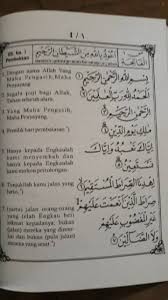 ١ / 1
QS ke. 1
Pembukaan
الفاتحة
أعوذ بالله من الشيطان الرجيم
1. Dengan nama Allah Yang
Maha Pengasih, Maha
Penyayang.
2. Segala puji bagi Allah,
Tuhan seluruh alam,
3. Yang Maha Pengasih,
Maha Penyayang,
4. Pemilik hari pembalasan.
5. Hanya kepada Engkaulah
kami menyembah dan
hanya kepada Engkaulah
kami mohon pertolongan.
6. Tunjukilah kami jalan yang
lurus,
7. (yaitu) jalan orang-orang
yang telah Engkau beri
nikmat kepadanya; bukan
(jalan) mereka yang dimur-
kai dan bukan (pula jalan)
mereka yang sesat.
بسم الله الرحمن الرحيم
الحمد لله رب العالمين
الرحمن الرحيم
ملك يوم الدين
إياك نعبد وإياك نستعين
اهدنا الصراط المستقيم
صراط الذين أنعمت عليهم
غير المغضوب عليهم
ولا الضالين